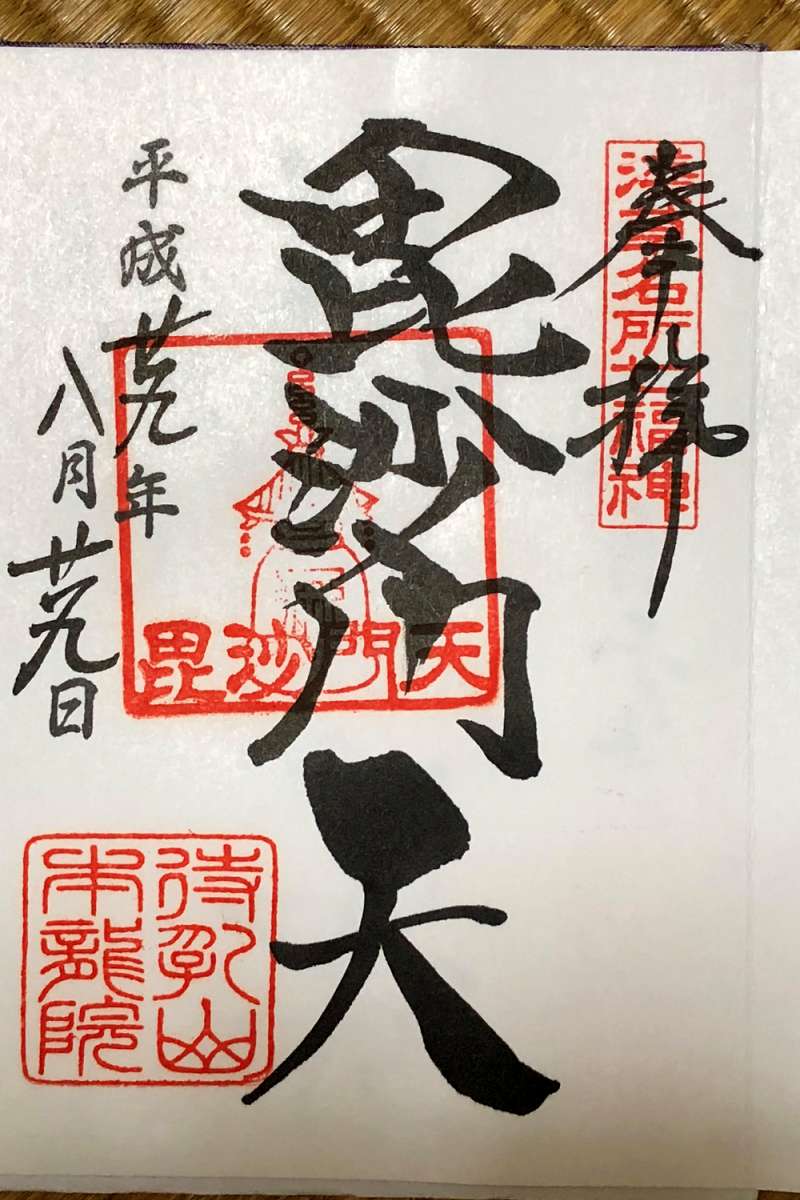 奉拝
浅草名所七福神
毘沙門天
毘沙門天
平成廿九年
八月廿九日
待乳山
本龍院